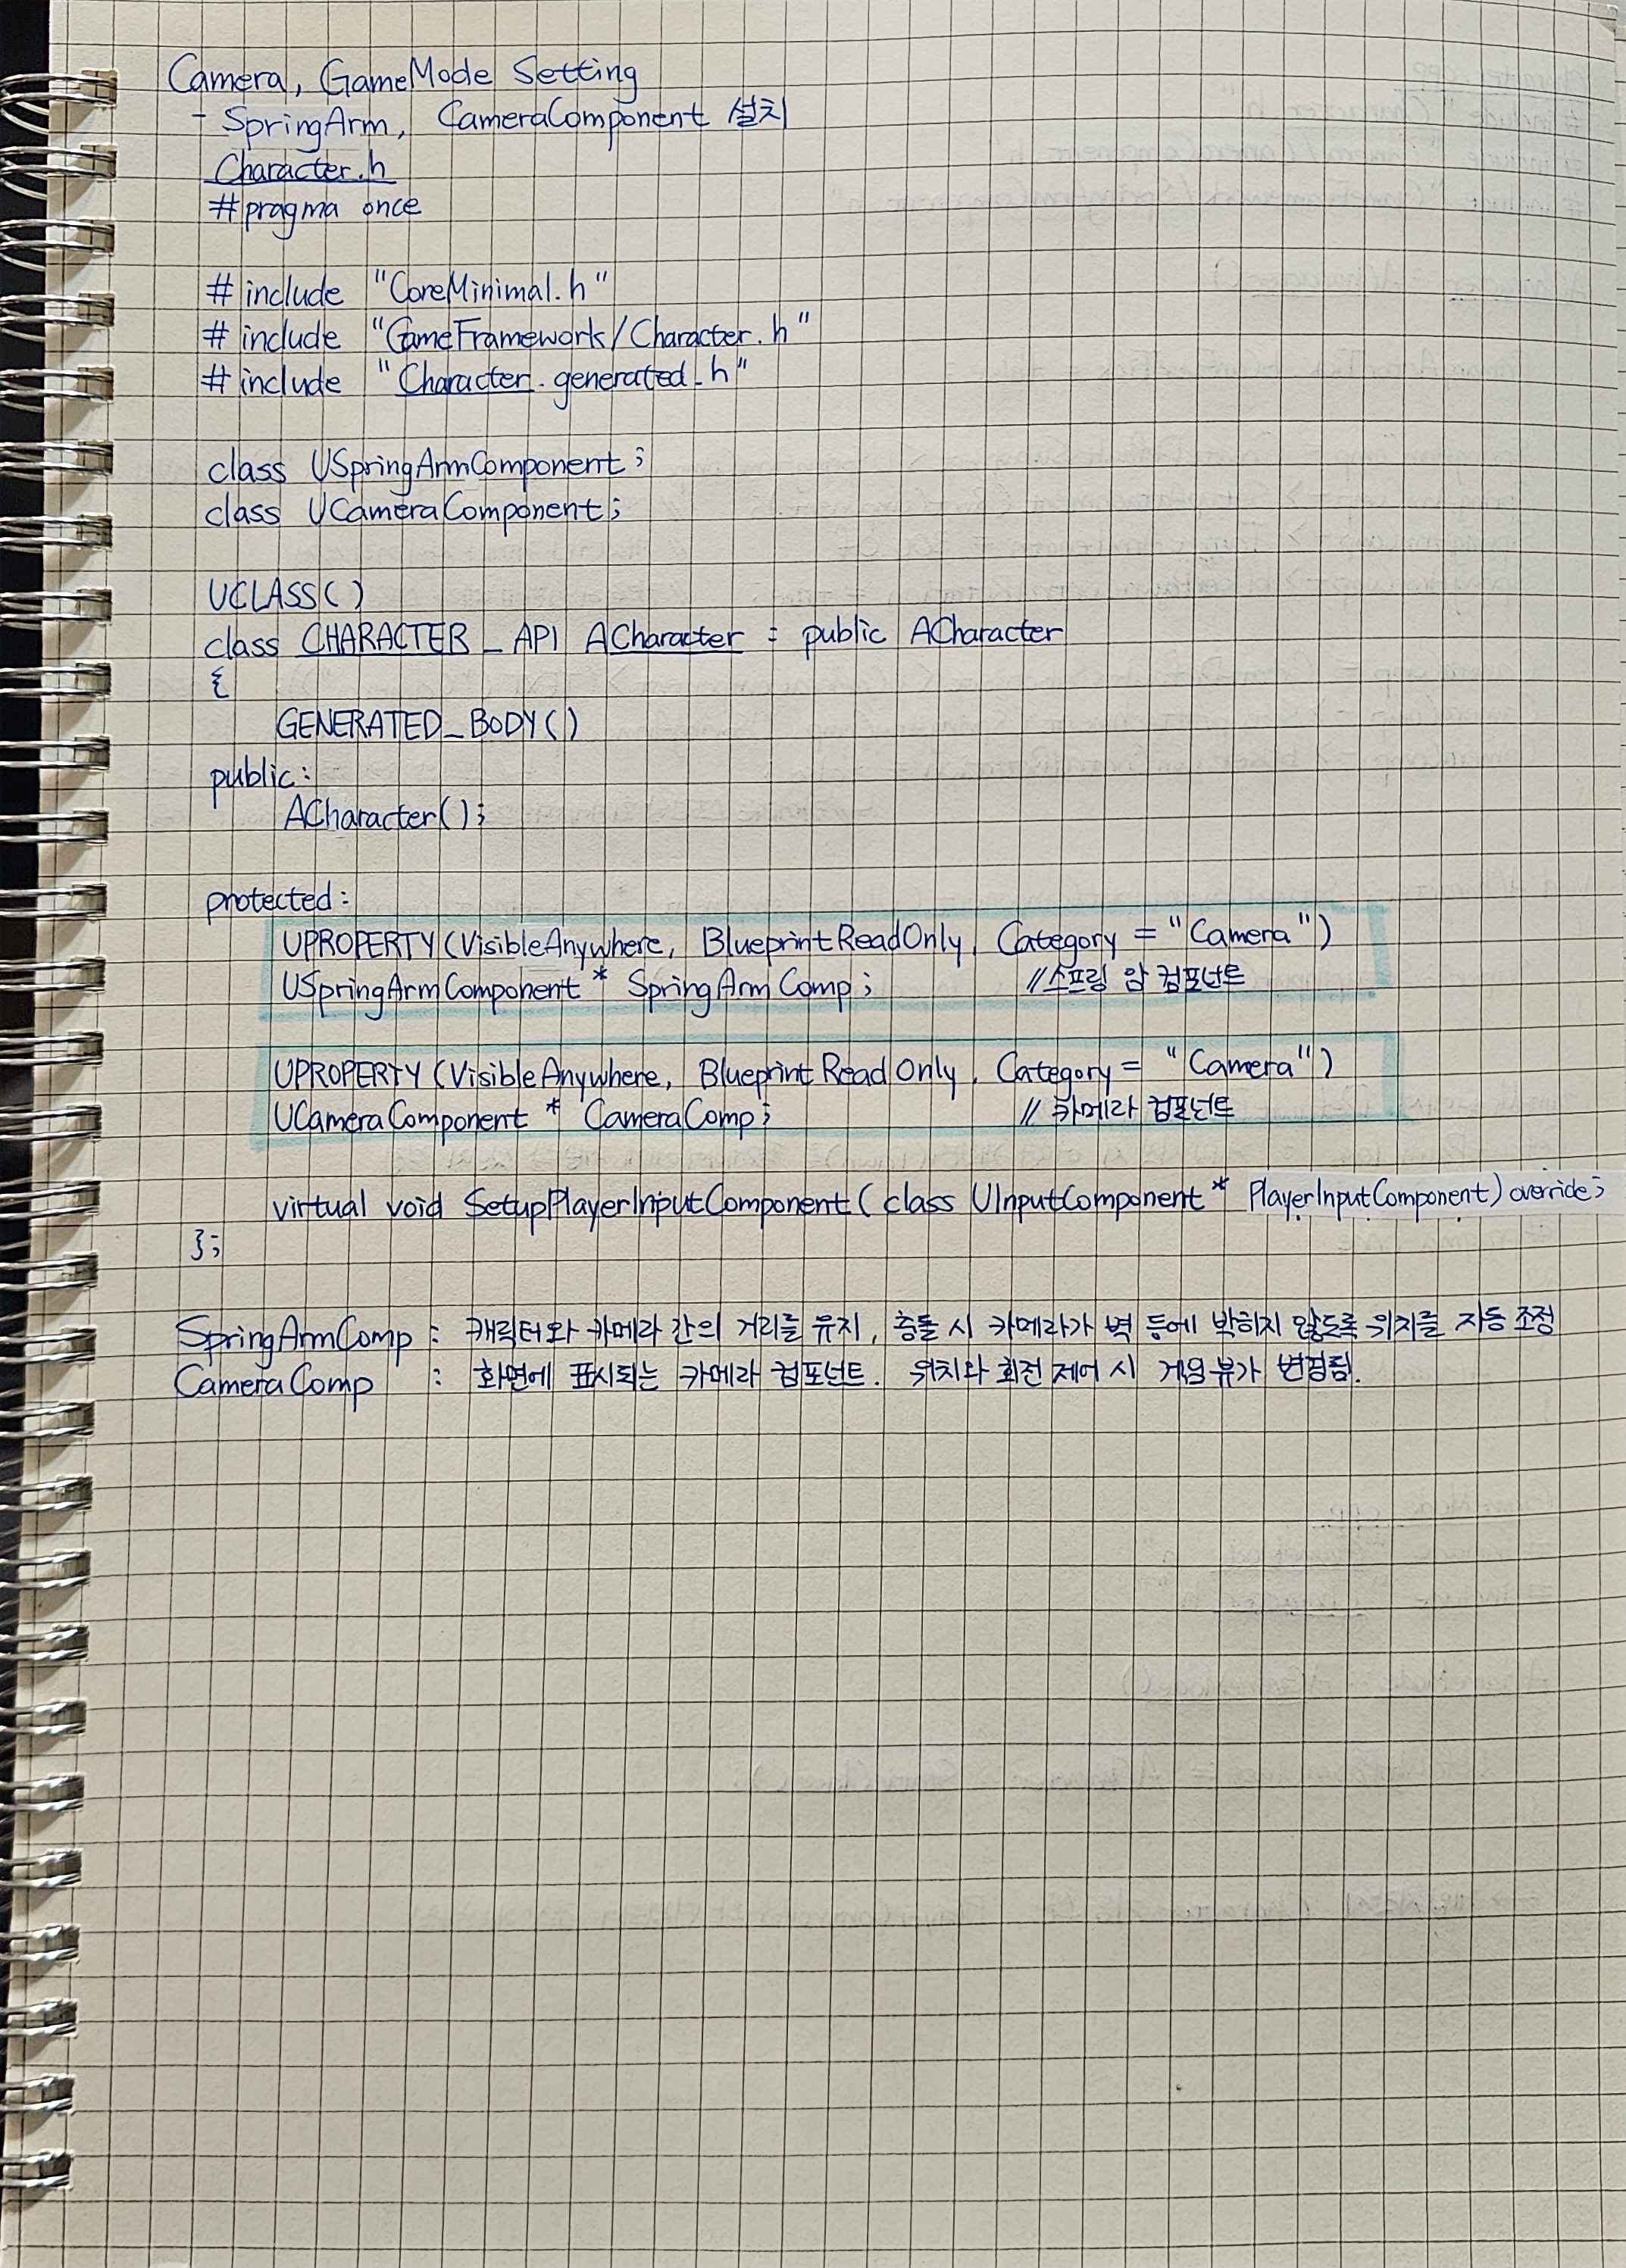 Camera, GameMode Setting
- SpringArm, CameraComponent 설치
Character.h
#pragma once
#include "CoreMinimal.h"
#include "GameFramework/Character.h"
#include "Character.generated.h"
class USpringArmComponent;
class UCameraComponent;
UCLASS()
class CHARACTER_API ACharacter : public ACharacter
{
GENERATED_BODY()
public:
ACharacter();
protected:
UPROPERTY(VisibleAnywhere, BlueprintReadOnly, Category = "Camera")
USpringArmComponent* SpringArmComp; //스프링 암 컴포넌트
UPROPERTY(VisibleAnywhere, BlueprintReadOnly, Category = "Camera")
UCameraComponent* CameraComp; // 카메라 컴포넌트
virtual void SetupPlayerInputComponent(class UInputComponent* PlayerInputComponent) override;
};
SpringArmComp : 캐릭터와 카메라 간의 거리를 유지, 충돌 시 카메라가 벽 등에 박히지 않도록 위치를 자동 조정
CameraComp : 화면에 표시되는 카메라 컴포넌트. 위치와 회전 제어 시 게임 뷰가 변경됨.